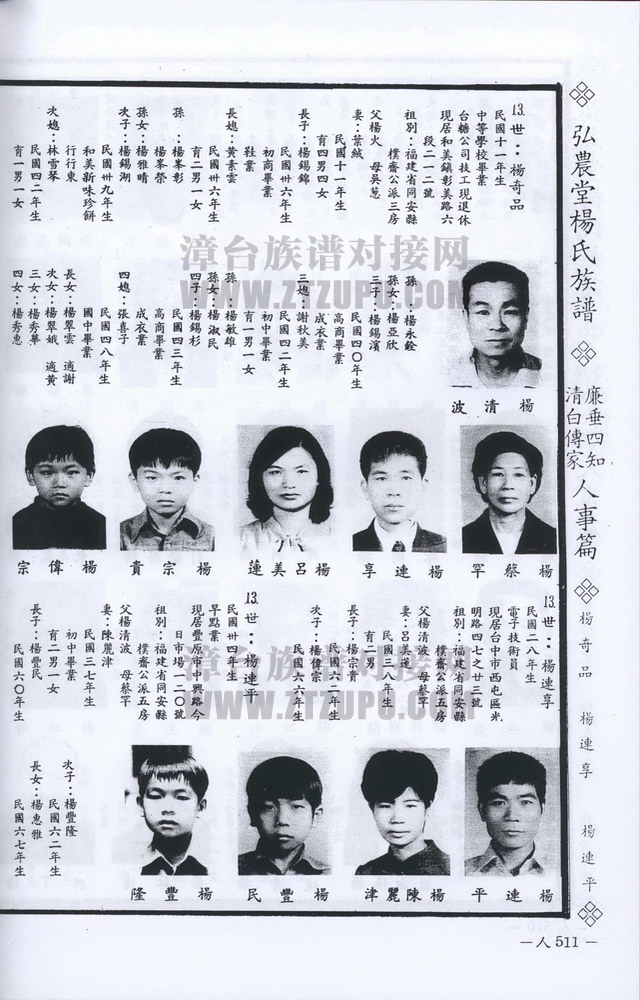 弘農堂楊氏族譜
廉垂四知
清白傳家
人事篇
楊奇品 楊連享 楊連平
13.世：楊奇品
民國十一年生
中等學校畢業
台糖公司技工現退休
現居和美鎮彰美路六
段二一二號
祖別：福建省同安縣
樸齋公派三房
父楊火 母吳葱
妻：葉絨
民國十一年生
育四男四女
長子：楊錫錦
民國卅六年生
初商畢業
鞋業
長媳：黃素雲
民國卅六年生
育二男一女
孫：楊峯彰
楊峯榮
孫女：楊雅晴
次子：楊錫湖
民國卅九年生
和美新味珍餅
行行東
次媳：林雪琴
民國四二年生
育一男一女
孫：楊永銓
孫女：楊亞欣
三子：楊錫濱
民國四〇年生
高商畢業
成衣業
三媳：謝秋美
民國四二年生
初中畢業
育一男一女
孫：楊敏雄
孫女：楊淑民
四子：楊錫杉
民國四三年生
高商畢業
成衣業
四媳：張喜子
民國四八年生
國中畢業
長女：楊翠雲 適謝
次女：楊翠娥 適黃
三女：楊秀華
四女：楊秀惠
波清楊
罕蔡楊
享連楊
蓮美呂楊
貴宗楊
宗偉楊
13.世：楊連享
民國二八年生
電子技術員
現居台中市西屯區光
明路四七之廿三號
祖別：福建省同安縣
樸齋公派五房
父楊清波 母蔡罕
妻：呂美蓮
民國三八年生
育二男
長子：楊宗貴
民國六二年生
次子：楊偉宗
民國六六年生
13.世：楊連平
民國卅四年生
早點業
現居豐原市中興路今
日市場一二〇號
祖別：福建省同安縣
樸齋公派五房
父楊清波 母蔡罕
妻：陳麗津
民國三七年生
初中畢業
育二男一女
長子：楊豐民
民國六〇年生
次子：楊豐隆
民國六二年生
長女：楊惠雅
民國六七年生
平連楊
津麗陳楊
民豐楊
隆豐楊
漳台族谱对接网
WWW.ZTZUPU.COM
漳台族谱对接网
WWW.ZTZUPU.COM
－人 511－